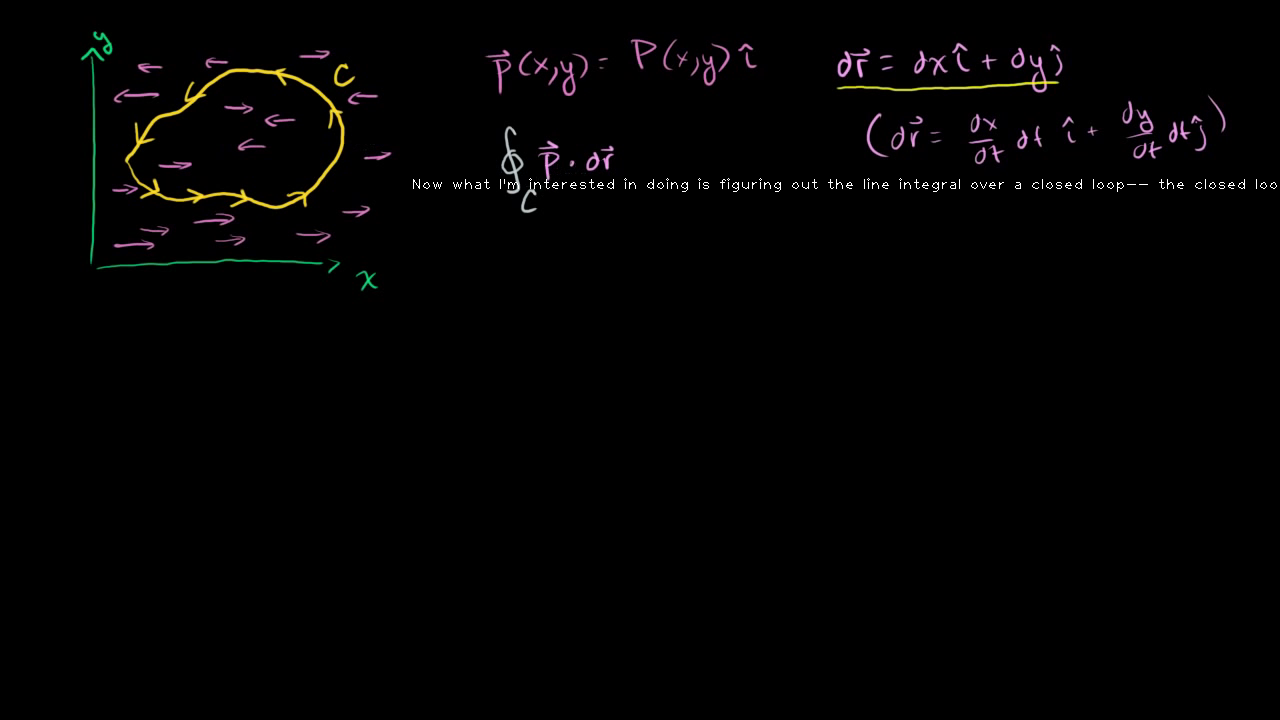 y
C
x
\vec{p}(x,y) = P(x,y) î
d\vec{r} = dx î + dy ĵ
(d\vec{r} = \frac{dx}{dt} dt î + \frac{dy}{dt} dt ĵ)
∮_C \vec{p} · d\vec{r}
Now what I'm interested in doing is figuring out the line integral over a closed loop-- the closed loo